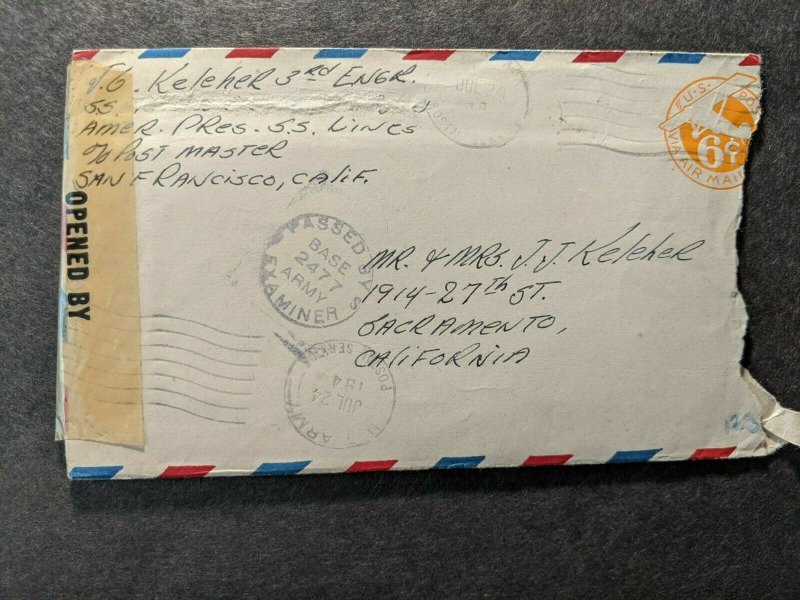 J.G. Keleher 3rd ENGR.
SS.
AMER. PRES. S.S. LINES
c/o POST MASTER
SAN FRANCISCO, CALIF.
OPENED BY
U.S. POS
VIA AIR MAIL
6¢
PASSED BY
BASE
2477
ARMY
EXAMINER
MR. & MRS. J.J. Keleher
1914-27th ST.
SACRAMENTO,
CALIFORNIA
JUL 24
194
ARMY
POSTAL SER